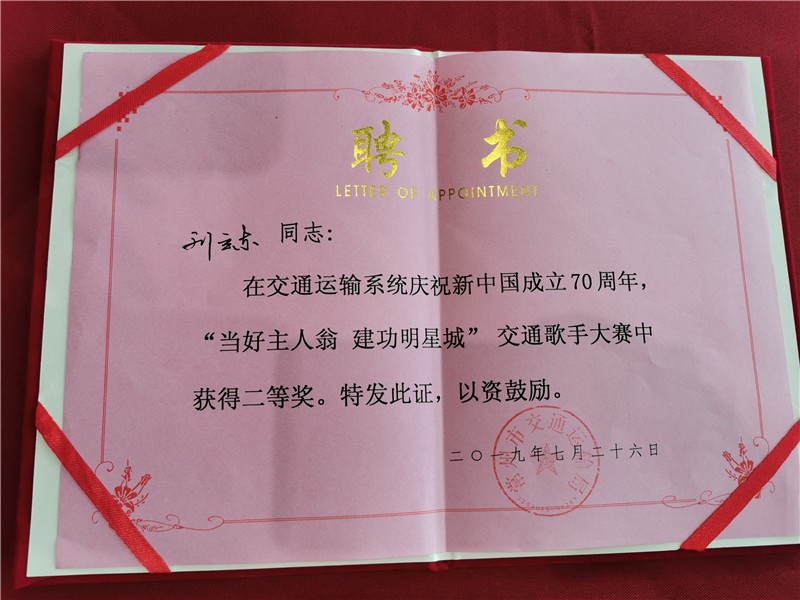 聘 书
LETTER OF APPOINTMENT
刘 同志：
在交通运输系统庆祝新中国成立70周年，
“当好主人翁 建功明星城”交通歌手大赛中
获得二等奖。特发此证，以资鼓励。
二〇一九年七月二十六日
常州市交通运输局